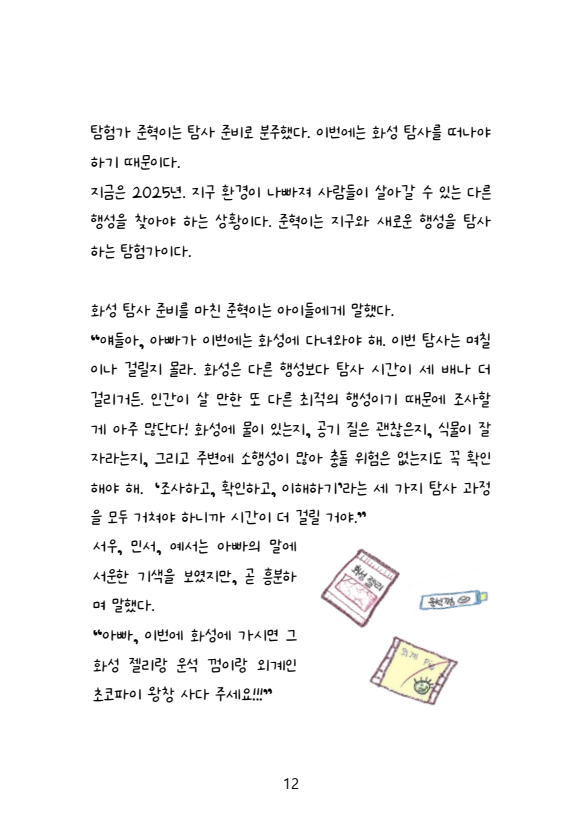 탐험가 준혁이는 탐사 준비로 분주했다. 이번에는 화성 탐사를 떠나야
하기 때문이다.
지금은 2025년. 지구 환경이 나빠져 사람들이 살아갈 수 있는 다른
행성을 찾아야 하는 상황이다. 준혁이는 지구와 새로운 행성을 탐사
하는 탐험가이다.
화성 탐사 준비를 마친 준혁이는 아이들에게 말했다.
“얘들아, 아빠가 이번에는 화성에 다녀와야 해. 이번 탐사는 며칠
이나 걸릴지 몰라. 화성은 다른 행성보다 탐사 시간이 세 배나 더
걸리거든. 인간이 살 만한 또 다른 최적의 행성이기 때문에 조사할
게 아주 많단다! 화성에 물이 있는지, 공기 질은 괜찮은지, 식물이 잘
자라는지, 그리고 주변에 소행성이 많아 충돌 위험은 없는지도 꼭 확인
해야 해. ‘조사하고, 확인하고, 이해하기’라는 세 가지 탐사 과정
을 모두 거쳐야 하니까 시간이 더 걸릴 거야.”
서우, 민서, 예서는 아빠의 말에
서운한 기색을 보였지만, 곧 흥분하
며 말했다.
“아빠, 이번에 화성에 가시면 그
화성 젤리랑 운석 껌이랑 외계인
초코파이 왕창 사다 주세요!!!”
화성 젤리
운석껌
외계 Pie
12